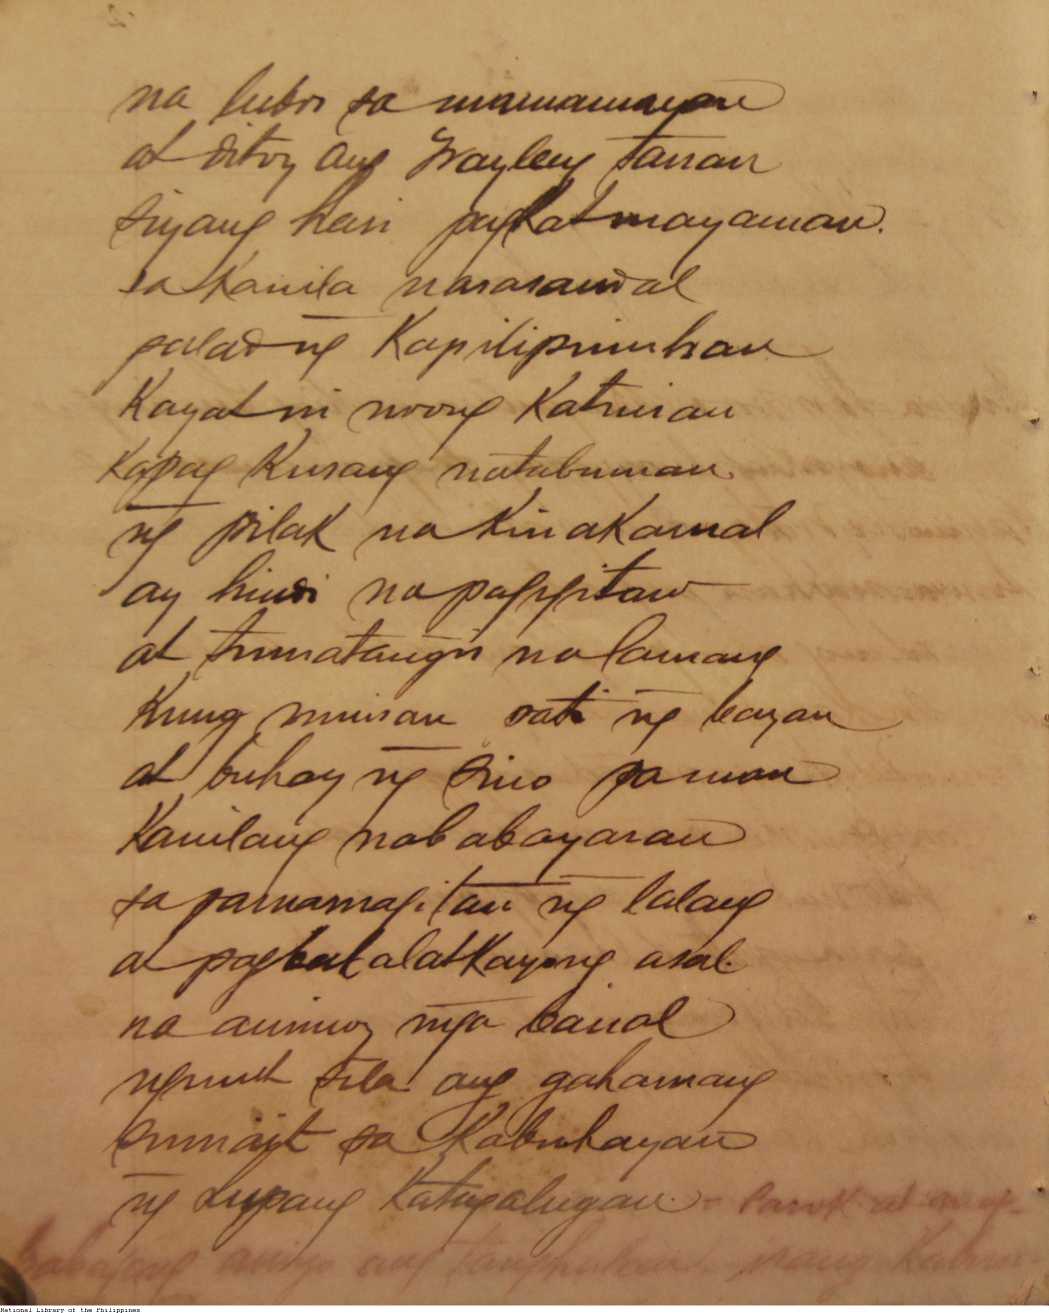 na lubos sa mamamayan
at ditoy ang Frayleng tanan
siyang hari pagkat mayaman.
sa kanila nasasandal
palad ng Kapilipinuhan
Kayat ni noong Katuiran
Kapag Kusang natabunan
ng pilak na Kinakamal
ay hindi na pagigitaw
at tumatangis na lamang
Kung minsan pati ng bayan
at buhay ng sino paman
Kanilang nababayaran
sa pamamagitan ng lalang
at pagbabalatKayong asal.
na animoy mga banal
ngunit sila ang gahamang
sumaijt sa Kabuhayan
ng Lupang Katagalugan. -
ang isang
National Library of the Philippines